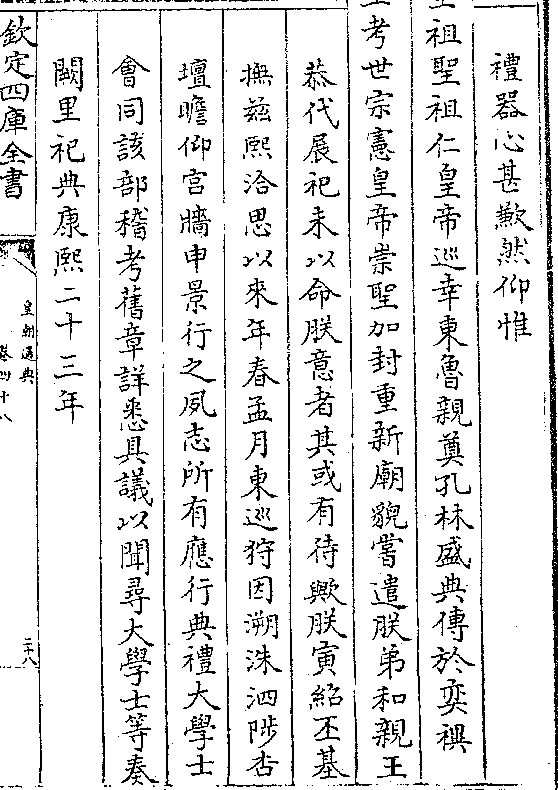 禮器心甚歉然仰惟
祖聖祖仁皇帝巡幸東魯親奠孔林盛典傳於奕禩
考世宗憲皇帝崇聖加封重新廟貌嘗遣朕弟和親王
恭代展祀未以命朕意者其或有待歟朕寅紹丕基
撫兹熙洽思以來年春孟月東巡狩因溯洙泗陟杏
壇瞻仰宮牆申景行之夙志所有應行典禮大學士
會同該部稽考舊章詳悉具議以聞尋大學士等奏
闕里祀典康熙二十三年
欽定四庫全書
皇朝通典
卷四十八
二十八